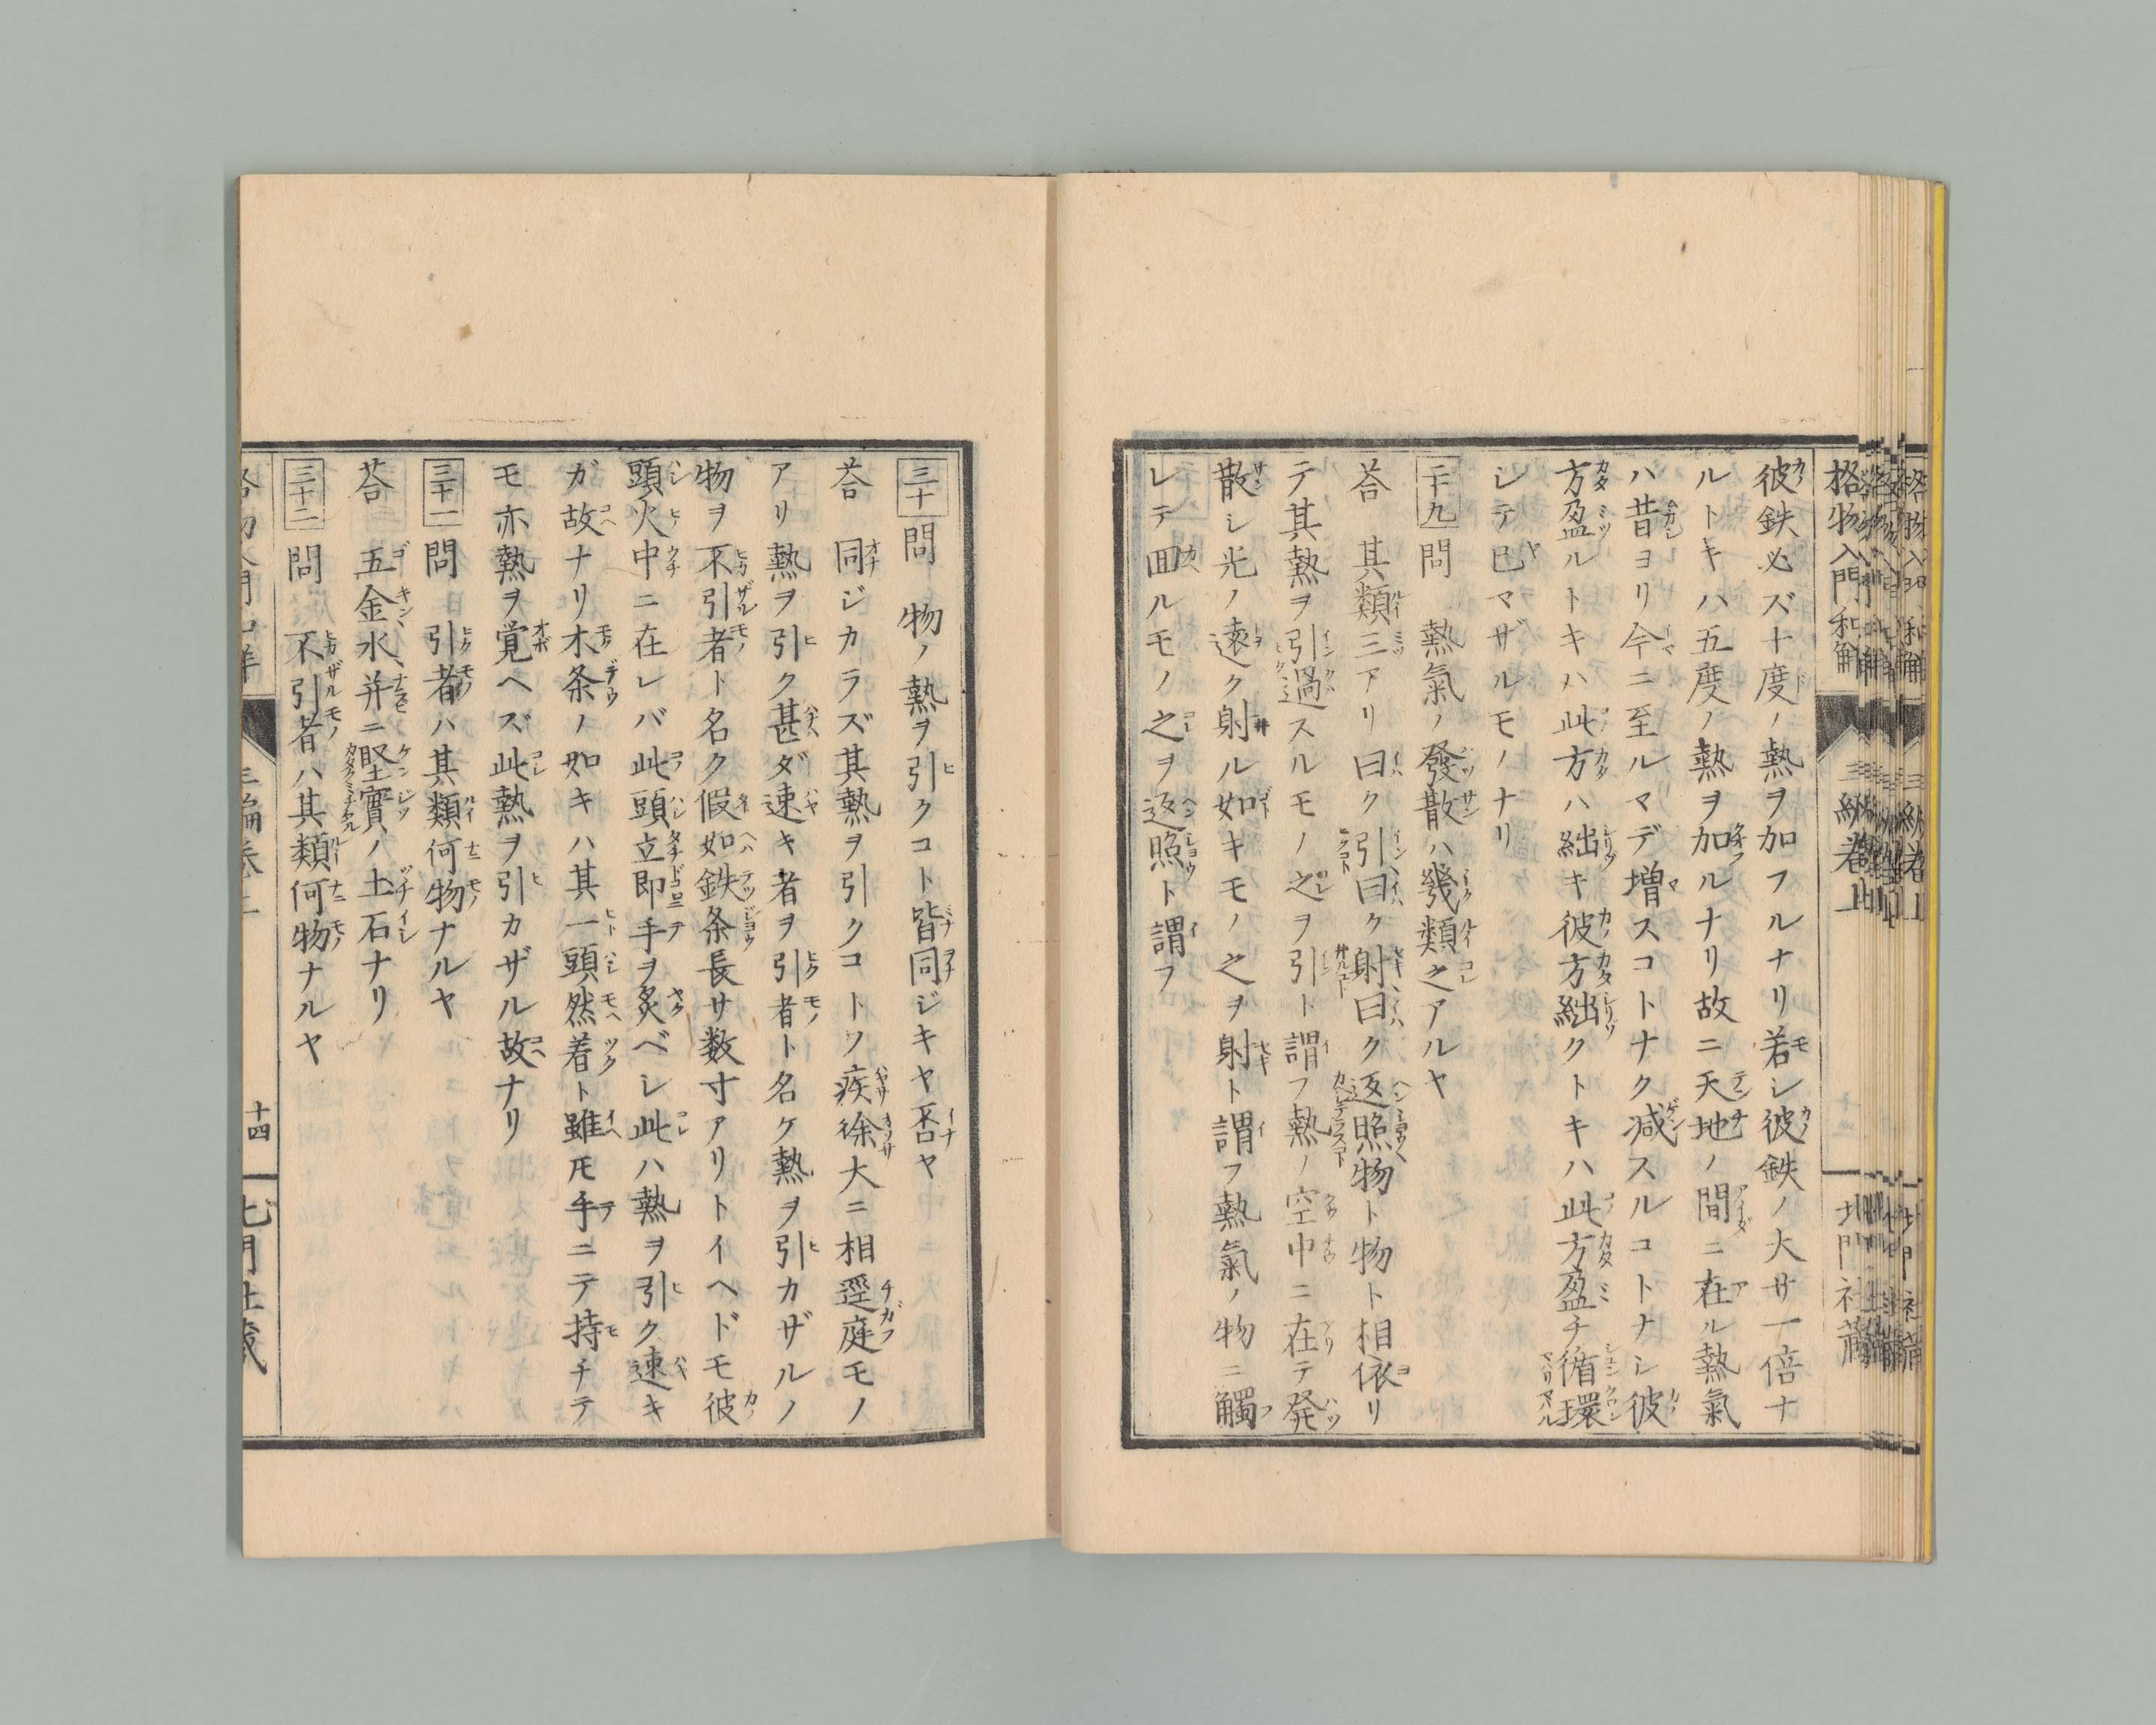 格物入門和解 三編卷上 北門社藏
彼鉄必ズ十度ノ熱ヲ加フルナリ若シ彼鉄ノ大サ一倍ナ
ルトキハ五度ノ熱ヲ加ルナリ故ニ天地ノ間ニ在ル熱氣
ハ昔ヨリ今ニ至ルマデ増スコトナク減スルコトナシ彼
方盈ルトキハ此方ハ絀キ彼方絀クトキハ此方盈チ循環
シテ已マザルモノナリ
二十九 問 熱氣ノ發散ハ幾類之アルヤ
荅 其類三アリ曰ク引曰ク射曰ク返照物ト物ト相依リ
テ其熱ヲ引過スルモノ之ヲ引ト謂フ熱ノ空中ニ在テ発
散シ光ノ遠ク射ル如キモノ之ヲ射ト謂フ熱氣ノ物ニ觸
レテ回ルモノ之ヲ返照ト謂フ
三十 問 物ノ熱ヲ引クコト皆同ジキヤ否ヤ
荅 同ジカラズ其熱ヲ引クコトノ疾徐大ニ相逕庭モノ
アリ熱ヲ引ク甚ダ速キ者ヲ引者ト名ケ熱ヲ引カザルノ
物ヲ不引者ト名ク假如鉄条長サ数寸アリトイヘドモ彼
頭火中ニ在レバ此頭立即手ヲ炙ベシ此ハ熱ヲ引ク速キ
ガ故ナリ木条ノ如キハ其一頭然着ト雖𪜈手ニテ持チテ
モ亦熱ヲ覚ヘズ此熱ヲ引カザル故ナリ
三十一 問 引者ハ其類何物ナルヤ
荅 五金水并ニ堅實ノ土石ナリ
三十二 問 不引者ハ其類何物ナルヤ
十四